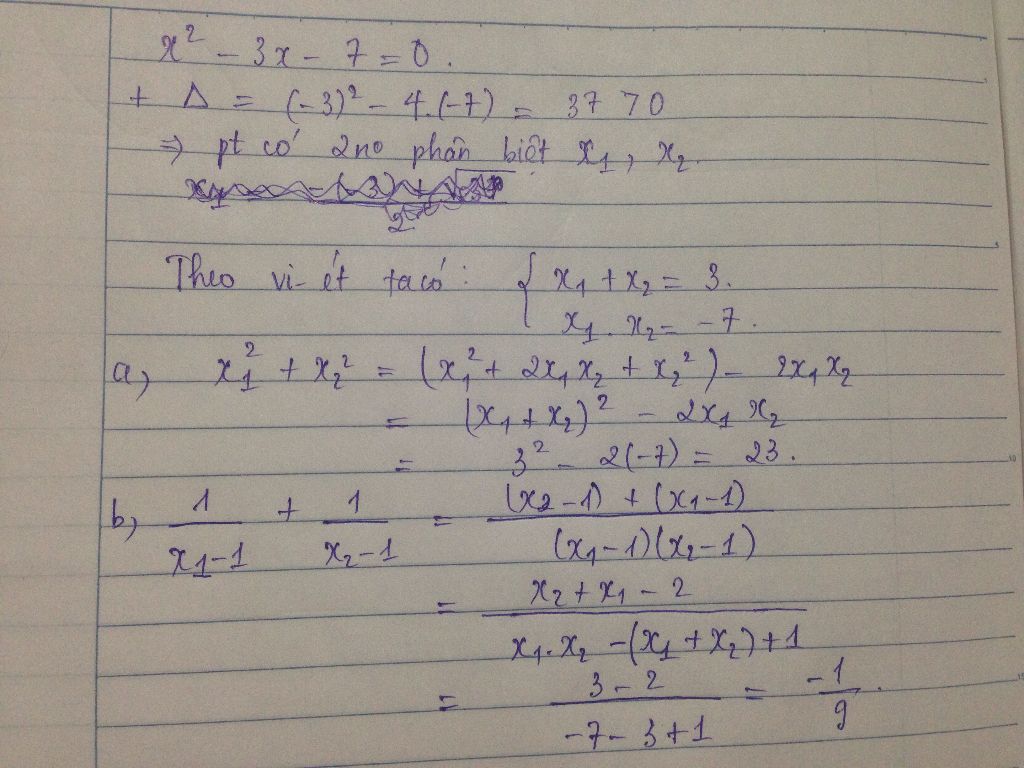 x² - 3x - 7 = 0.
+ Δ = (-3)² - 4.(-7) = 37 > 0
⇒ pt có 2no phân biệt x₁, x₂.
Theo vi-ét ta có: { x₁ + x₂ = 3.
x₁ . x₂ = -7.
a, x₁² + x₂² = (x₁² + 2x₁x₂ + x₂²) - 2x₁x₂
= (x₁ + x₂)² - 2x₁x₂
= 3² - 2(-7) = 23.
b, 1/(x₁-1) + 1/(x₂-1) = ((x₂-1) + (x₁-1))/((x₁-1)(x₂-1))
= (x₂ + x₁ - 2)/(x₁.x₂ - (x₁ + x₂) + 1)
= (3 - 2)/(-7 - 3 + 1) = -1/9.